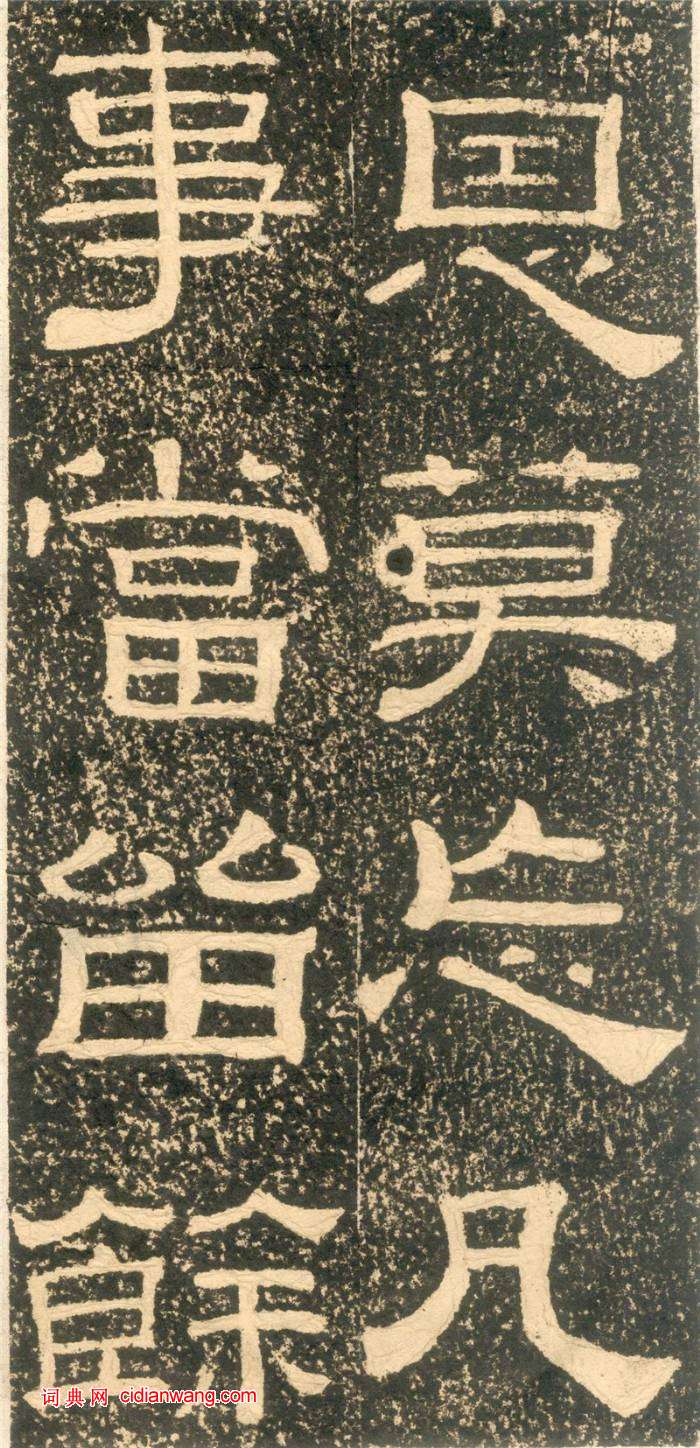 恩莫忘凡
事當留餘
词典网 cidianwang.com